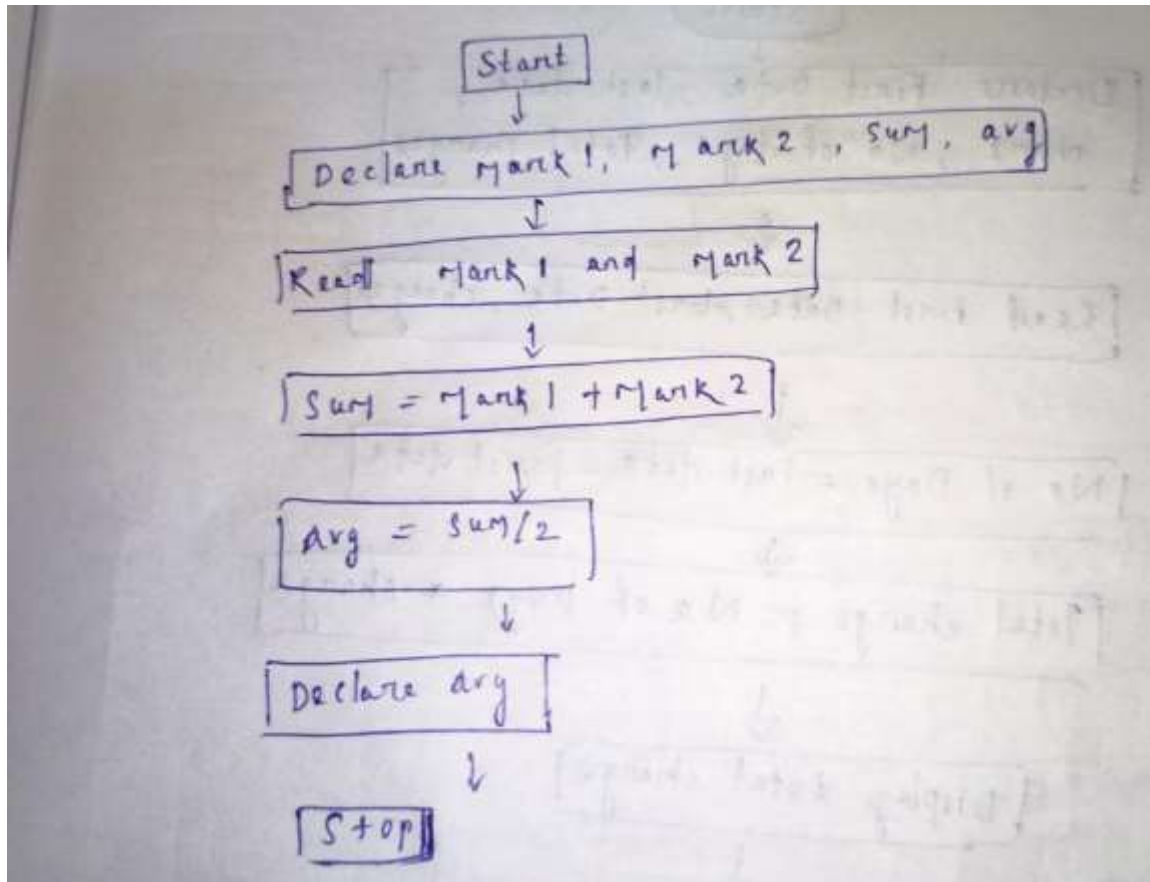 Start
Declare Mark 1, Mark 2, Sum, avg
Read Mark 1 and Mark 2
Sum = Mark 1 + Mark 2
Avg = Sum/2
Declare avg
Stop